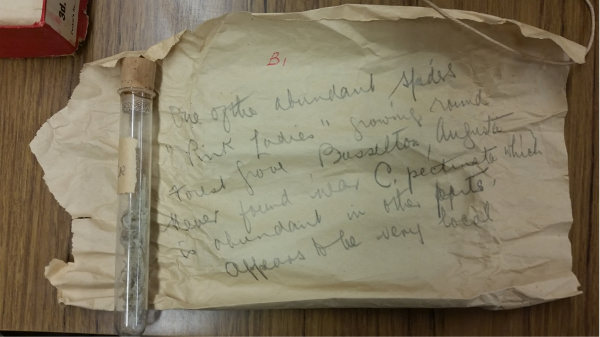 3d.
B1
One of the abundant species
"Pink Ladies" growing round
Forest Grove, Busselton, Augusta
Never found near C. pectinata which
is abundant in other parts,
appears to be very local